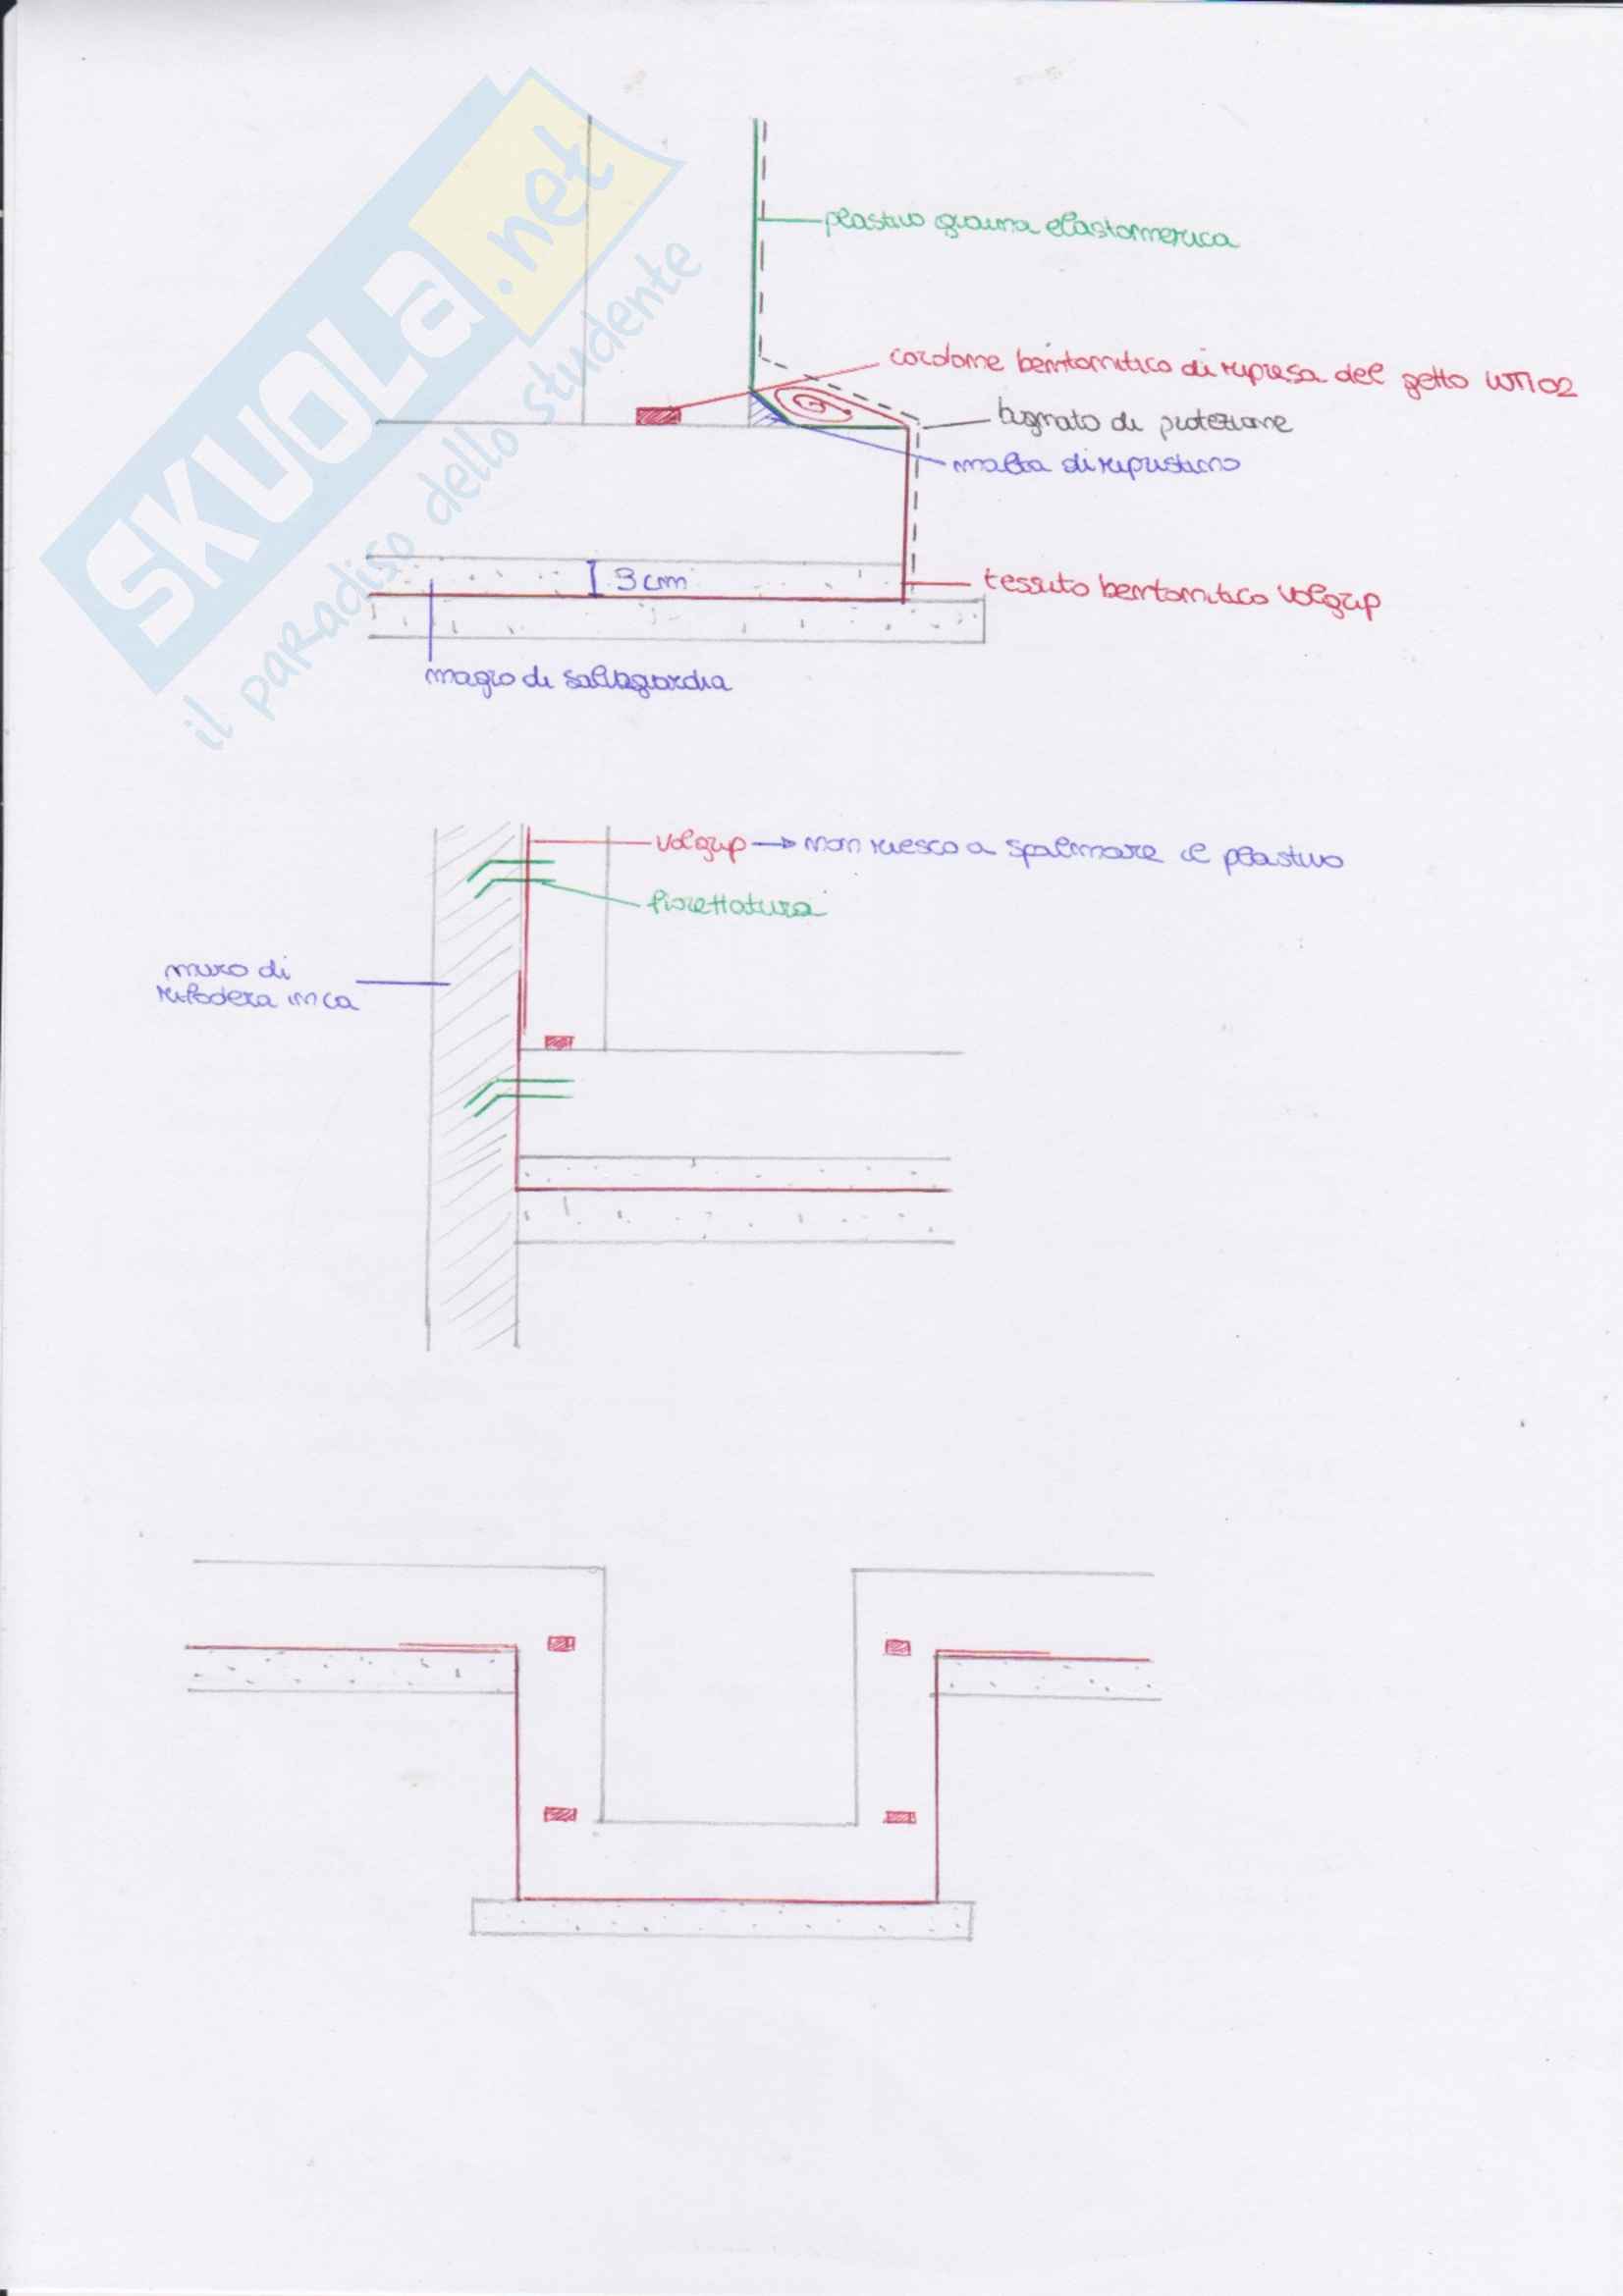 SKUOLA.net
il paradiso dello studente
plastivo guaina elastomerica
cordone bentonitico di ripresa del getto WT102
bugnato di protezione
malta di ripristino
3 cm
tessuto bentonitico Volgrip
magro di salvaguardia
Volgrip → non riesco a spalmare il plastivo
fiorettatura
muro di
rifodera in ca